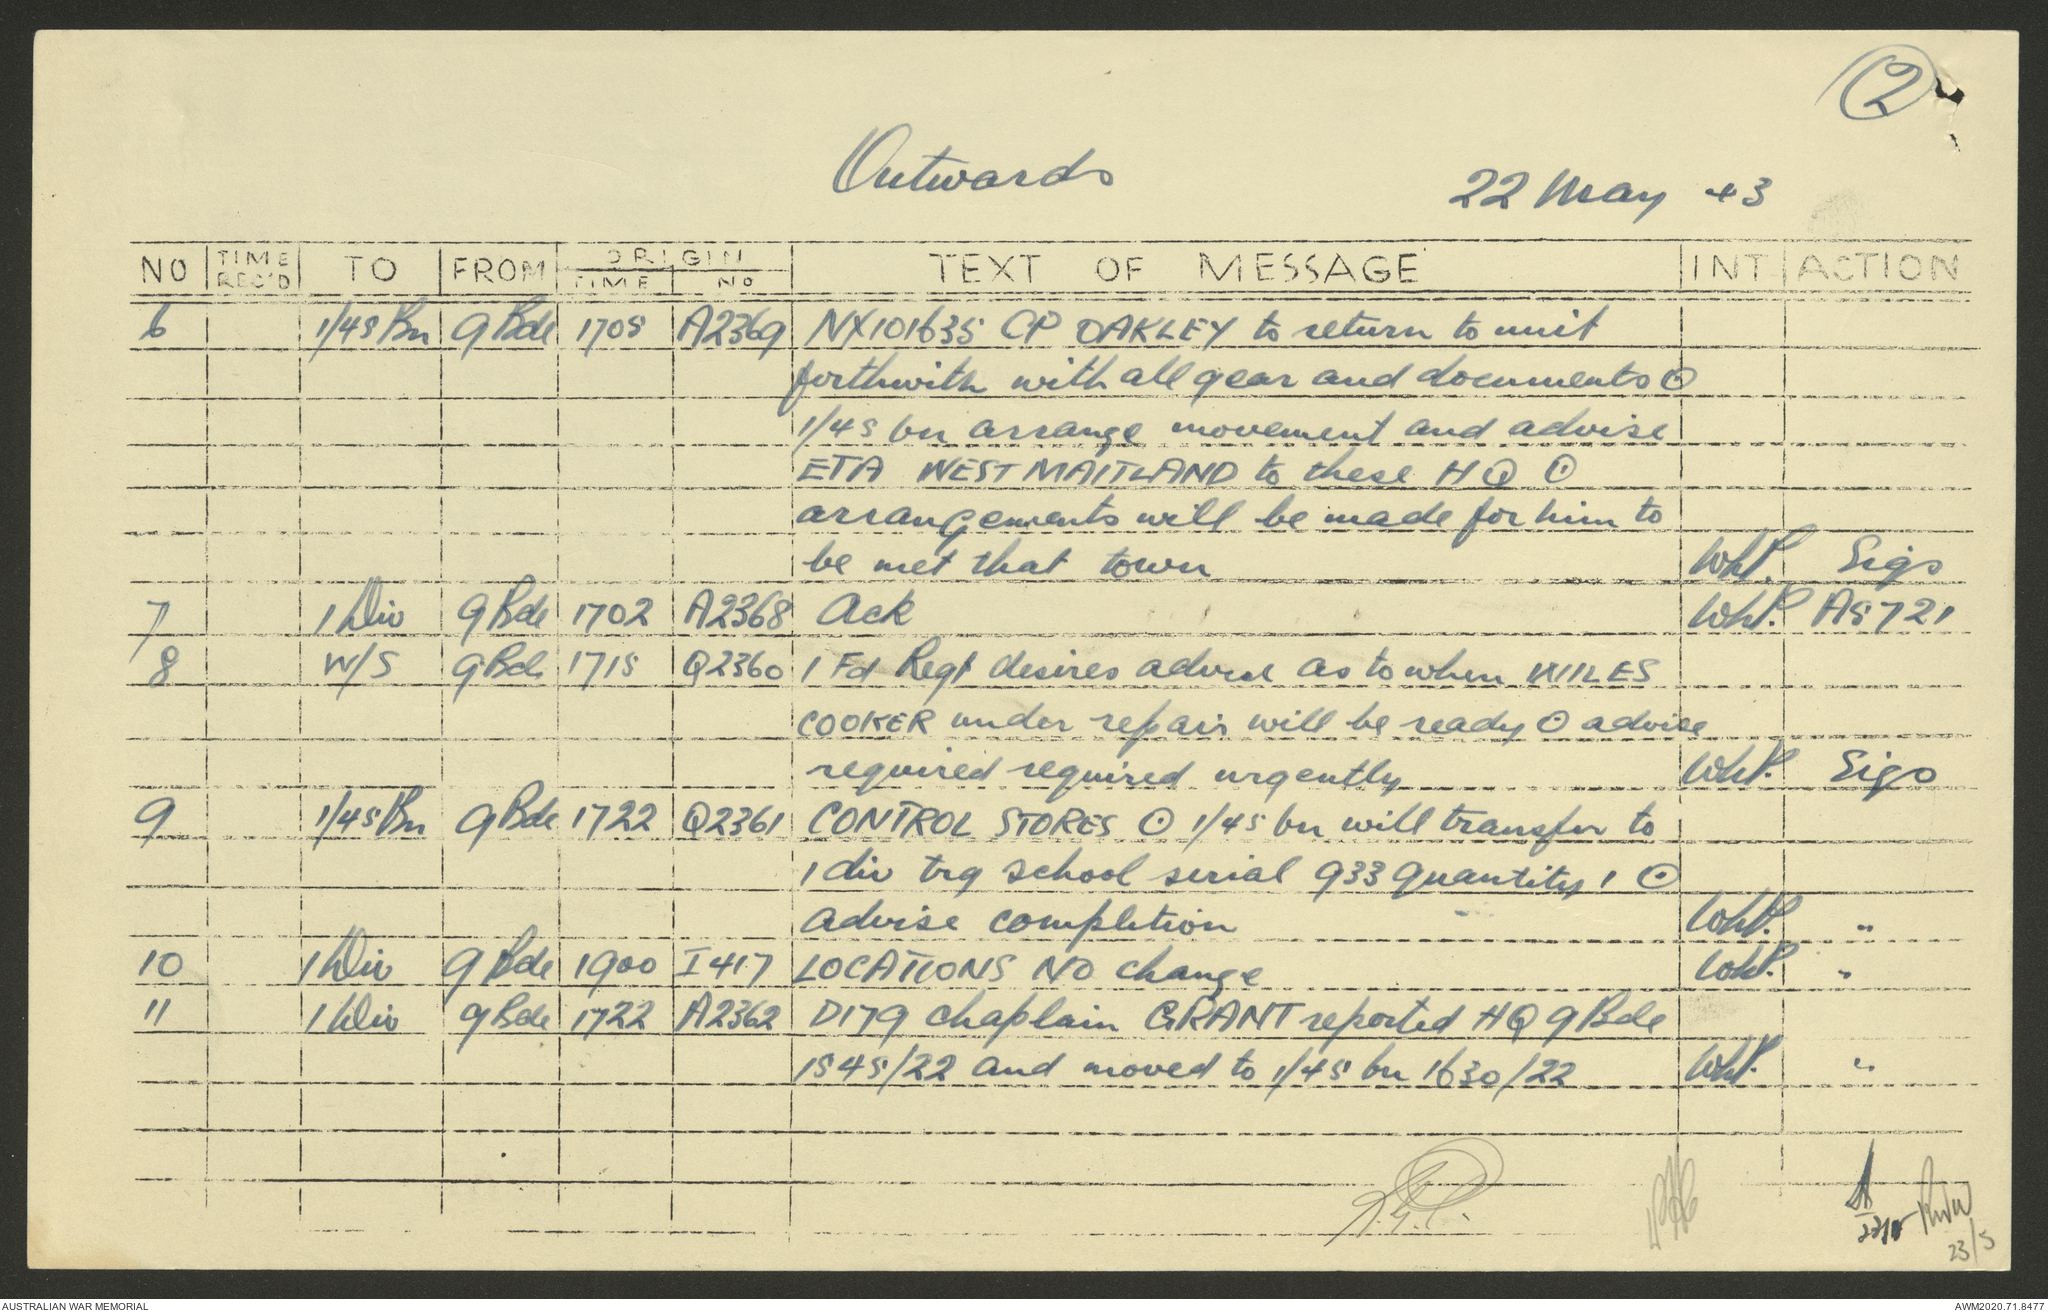 2
Outwards
22 May 43
NO TIME REC'D TO FROM ORIGIN TIME NO TEXT OF MESSAGE INT ACTION
6 1/45 Bn 9 Bde 1705 A2369 NX101635 CP OAKLEY to return to unit
forthwith with all gear and documents ⊙
1/45 bn arrange movement and advise
ETA WEST MAITLAND to these HQ ⊙
arrangements will be made for him to
be met that town WhP. Sigs
7 1 Div 9 Bde 1702 A2368 Ack WhP. AS721
8 W/S 9 Bde 1715 Q2360 1 Fd Regt desires advise as to when WILES
COOKER under repair will be ready ⊙ advise
required required urgently WhP. Sigs
9 1/45 Bn 9 Bde 1722 Q2361 CONTROL STORES ⊙ 1/45 bn will transfer to
1 div trg school serial 933 quantity 1 ⊙
advise completion WhP. "
10 1 Div 9 Bde 1900 I417 LOCATIONS NO change WhP. "
11 1 Div 9 Bde 1722 A2362 D179 chaplain GRANT reported HQ 9 Bde
1545/22 and moved to 1/45 bn 1630/22 WhP. "
23/5
AUSTRALIAN WAR MEMORIAL
AWM2020.71.8477